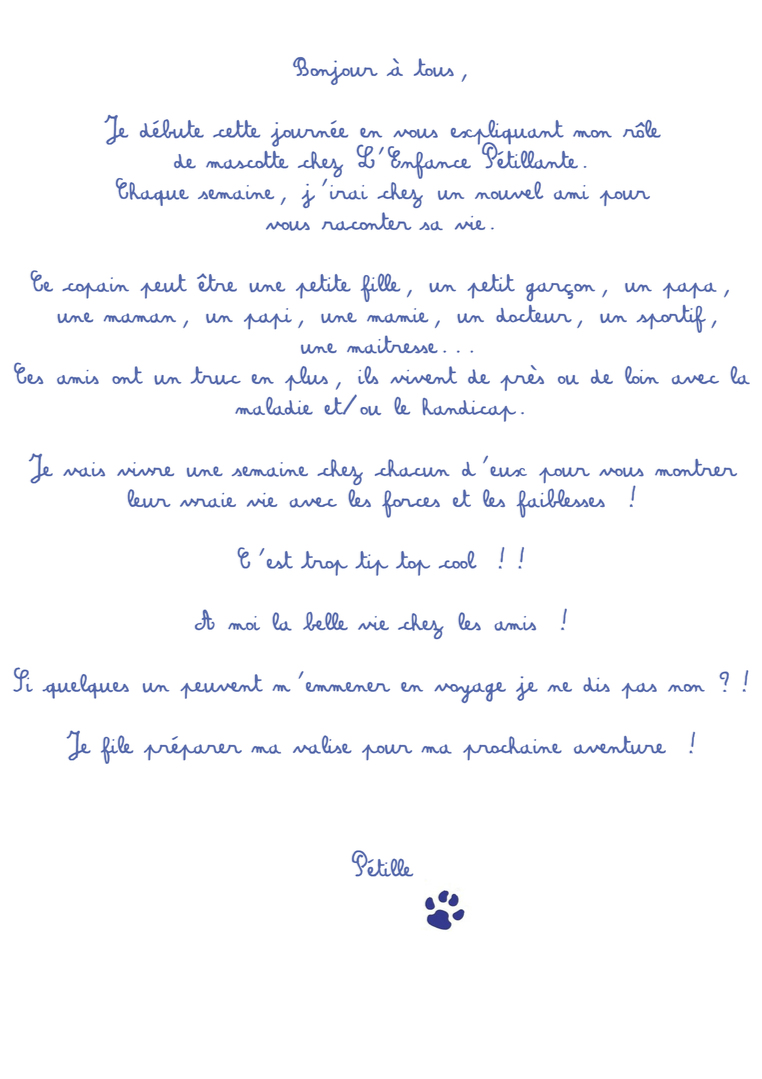 Bonjour à tous,
Je débute cette journée en vous expliquant mon rôle
de mascotte chez L'Enfance Pétillante.
Chaque semaine, j'irai chez un nouvel ami pour
vous raconter sa vie.
Ce copain peut être une petite fille, un petit garçon, un papa,
une maman, un papi, une mamie, un docteur, un sportif,
une maitresse...
Ces amis ont un truc en plus, ils vivent de près ou de loin avec la
maladie et/ou le handicap.
Je vais vivre une semaine chez chacun d'eux pour vous montrer
leur vraie vie avec les forces et les faiblesses !
C'est trop tip top cool !!
A moi la belle vie chez les amis !
Si quelques un peuvent m'emmener en voyage je ne dis pas non ?!
Je file préparer ma valise pour ma prochaine aventure !
Pétille